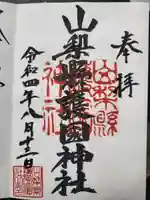 奉拝
山梨縣護國神社
令和四年八月十三日